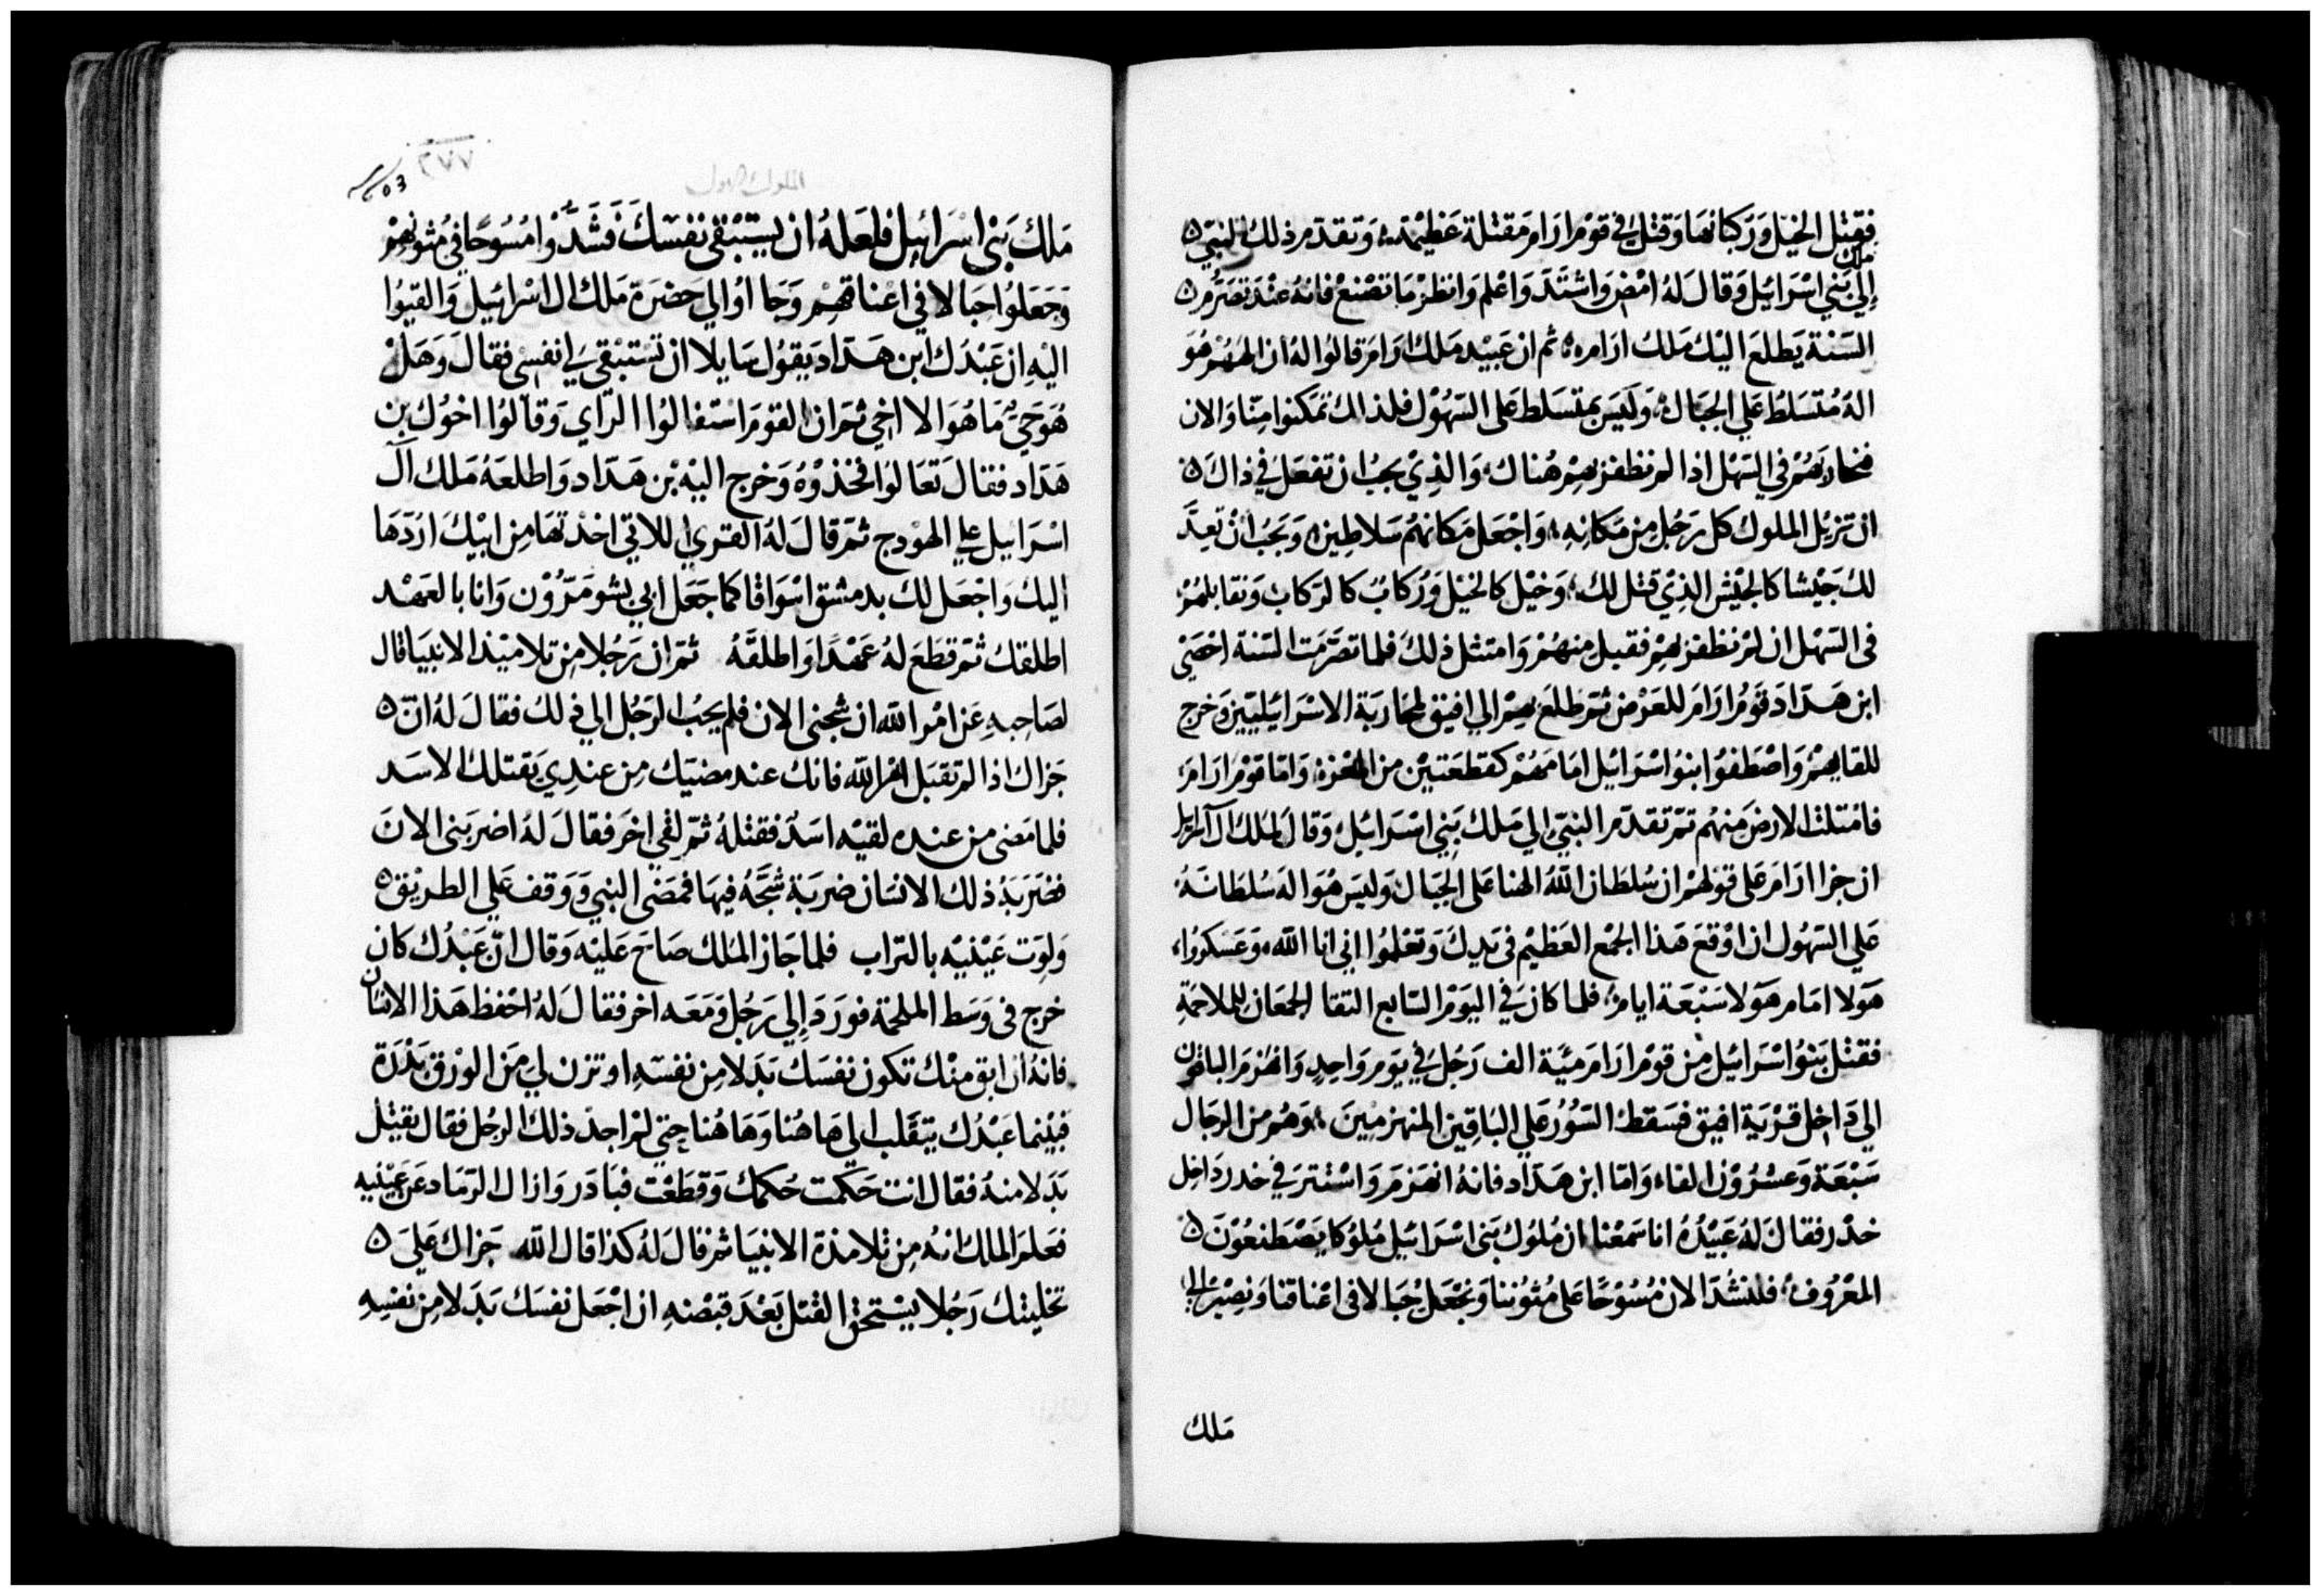 فقتل الخيل وركبانها وقتل في قوم ارام مقتلة عظيمة، وتقدم ذلك النبي
ملك
إلى بني اسرائيل وقال له امض واشتد واعلم وانظر ما تصنع فانه عند تصرم
السنة يطلع اليك ملك ارام، ثم ان عبيد ملك ارام قالوا له ان الههم هو
اله متسلط علي الجبال، وليس بمتسلط على السهول فلذلك تمكنوا منا والان
نحاربهم في السهل اذا لم نظفر بهم هناك، والذي يجب ان تفعل في ذاك
ان تزيل الملوك كل رجل من مكانه، واجعل مكانهم سلاطين، ويجب أن تعد
لك جيشا كالجيش الذي قتل لك، وخيل كالخيل وركاب كالركاب ونقابلهم
في السهل ان لم نظفر بهم فقبل منهم وامتثل ذلك فلما تصرمت السنة احصى
ابن هداد قوم ارام للعرض ثم طلع بهم الي افيق لمحاربة الاسرائيليين وخرج
للقايهم واصطفوا بنو اسرائيل امامهم كقطعتين من المعزة، واما قوم ارام
فامتلت الارض منهم ثم تقدم النبي الي ملك بني اسرائيل، وقال لملك آل اسرايل
ان جزا ارام على قولهم ان سلطان الله الهنا على الجبال وليس هو اله سلطانه
علي السهول ان اوقع هذا الجمع العظيم في يدك وتعلموا اني انا الله، وعسكروا،
هولا امام هولا سبعة ايام، فلما كان في اليوم السابع التقا الجمعان للملاحمة
فقتل بنو اسرائيل من قوم ارام مئية الف رجل في يوم واحد وانهزم الباقون
الي داخل قرية افيق فسقط السور علي الباقين المنهزمين، وهم من الرجال
سبعة وعشرون الفا، واما ابن هداد فانه انهزم واستتر في خدر داخل
خدر فقال له عبيده انا سمعنا ان ملوك بني اسرائيل ملوكا يصطنعون
المعروف، فلنشد الان مسوحا على متوننا ونجعل حبالا في اعناقنا ونصير الي
ملك
الملوك الاول
٢٧٧
603
ملك بني اسرائيل فلعله ان يستبقي نفسك فشدوا مسوحا في متونهم
وجعلوا حبالا في اعناقهم وجااوا الي حضرة ملك ال اسرائيل والقيوا
اليه ان عبدك ابن هداد يقول سايلا ان تستبقي لي نفسي فقال وهل
هو حي ما هو الا اخي ثم ان القوم استفالوا الراي وقالوا اخوك بن
هداد فقال تعالوا فخذوه وخرج اليه بن هداد واطلعه ملك آل
اسرائيل علي الهودج ثم قال له القري اللاتي اخذتها من ابيك اردها
اليك واجعل لك بدمشق اسواقا كما جعل ابي بشومرون وانا بالعهد
اطلقك ثم قطع له عهدا واطلقه ثم ان رجلا من تلاميذ الانبيا قال
لصاحبه عن امر الله ان شجني الان فلم يجب الرجل الي ذلك فقال له ان
جزاك اذا لم تقبل امر الله فانك عند مضيك من عندي يقتلك الاسد
فلما مضى من عنده لقيه اسد فقتله ثم لقي اخر فقال له اضربني الان
فضربه ذلك الانسان ضربة شجه فيها فمضى النبي ووقف علي الطريق
ولوت عينيه بالتراب فلما جاز الملك صاح عليه وقال ان عبدك كان
خرج في وسط الملحمة فورد إلي رجل ومعه اخر فقال له احفظ هذا الانسان
فانه ان ابق منك تكون نفسك بدلا من نفسه او تزن لي من الورق بدرة
فبينما عبدك يتقلب الي هاهنا وهاهنا حتي لم اجد ذلك الرجل فقال نقتل
بدلا منه فقال انت حكمت حكمك وقطعت فبادر وازال الرماد عن عينيه
فعلم الملك انه من تلامذة الانبيا ثم قال له كذا قال الله جزاك علي
تخليتك رجلا يستحق القتل بعد قبضه ان اجعل نفسك بدلا من نفسه